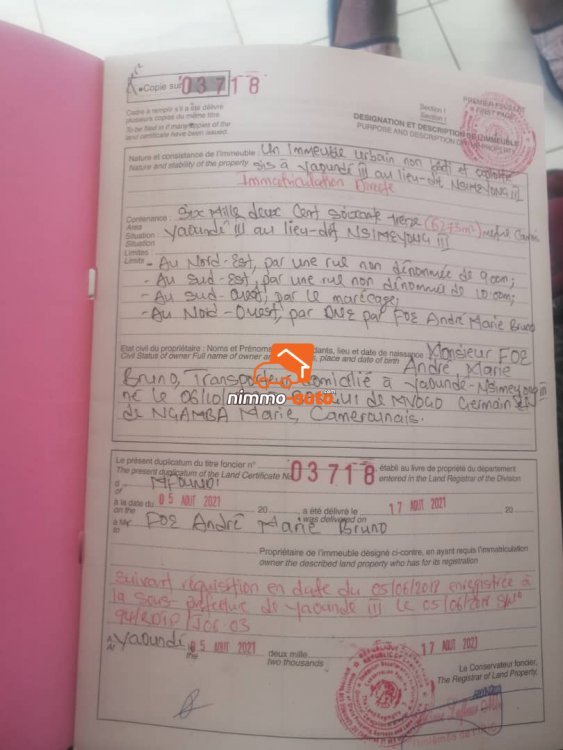 Copie sur 03718
Cadre à remplir s'il a été délivré
plusieurs copies du même titre.
To be filed in if many copies of the
land certificate have been issued.
Section I
Section I
PREMIER FEUILLET
FIRST PAGE
DESIGNATION ET DESCRIPTION DE L'IMMEUBLE
PURPOSE AND DESCRIPTION OF PROPERTY
Nature et consistance de l'immeuble Un immeuble urbain non bâti et exploité
Nature and stability of the property sis à Yaoundé III au lieu-dit NSIMEYONG II
Immatriculation Directe
Contenance : Six Mille deux Cent Soixante treize (6273m²) mètres Carrés
Area
Situation : Yaoundé III au lieu-dit NSIMEYONG II
Situation
Limites :
Limits
- Au Nord-Est, par une rue non dénommée de 9,00m;
- Au Sud-Est, par une rue non dénommée de 10,00m;
- Au Sud-Ouest, par le marécage;
- Au Nord-Ouest, par DNE par FOE André Marie Bruno
Etat civil du propriétaire : Noms et Prénoms lieu et date de naissance Monsieur FOE
Civil Status of owner Full name of owner place and date of birth André Marie
Bruno, Transporteur domicilié à Yaoundé-Nsimeyong II
né le 06/10 de MVOGO Germain et
de NGAMBA Marie, Camerounais.
nimmo-auto.com
Le présent duplicatum du titre foncier n° 03718 établi au livre de propriété du département
The present duplicatum of the Land Certificate No entered in the Land Registrar of the Division
d MFOUNDI
of
à la date du 05 AOUT 2021 20 a été délivré le 17 AOUT 2021 20
on the was delivered on
à Mr FOE André Marie Bruno
to
Propriétaire de l'immeuble désigné ci-contre, en ayant requis l'immatriculation
owner the described land property who has for its registration
suivant réquisition en date du 05/06/2018 enregistrée à
la Sous-préfecture de Yaoundé III le 05/06/2018 S/N°
94/RDIP/J06.03
A Yaoundé le 05 AOUT 2021 deux mille 17 AOUT 2021
At the two thousands
Le Conservateur foncier,
The Registrar of Land Property,